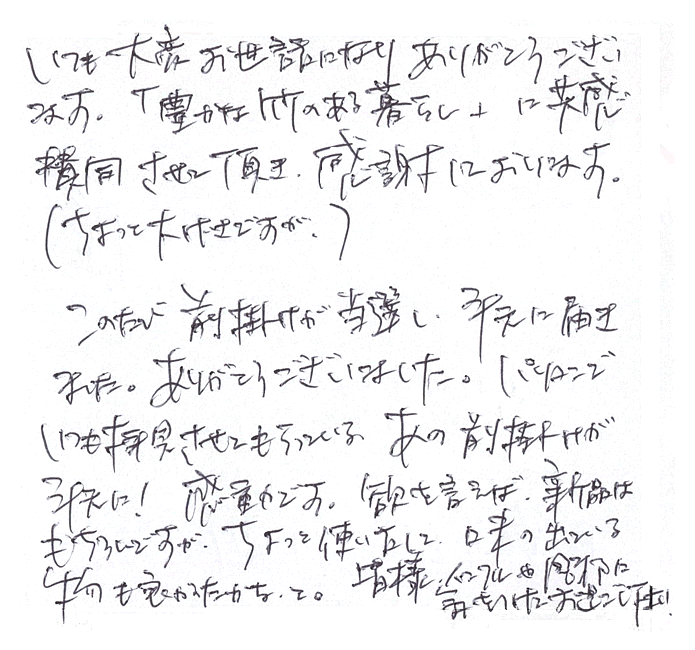 いつも大変お世話になりありがとうござい
ます。「豊かな竹のある暮らし」に共感し
賛同させて頂き、感謝しております。
(ちょっと大げさですが、)
このたび前掛けが当選し、手元に届き
ました。ありがとうございました。パソコンで
いつも拝見させてもらっている、あの前掛けが
手元に!感動です。欲を言えば、新品は
もちろんですが、ちょっと使い古して、味の出ている
物も良かったかな、と。皆様、インフルや風邪に
気をつけてお過ごし下さい!